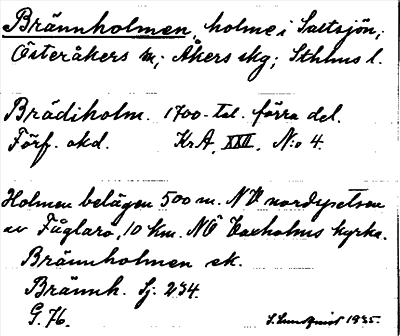 Brännholmen, holme i Saltsjön;
Österåkers sn; Åkers skg; Sthlms l.
Brädiholm. 1700-tal. förra del.
Förf. okd. KrA, XXI, N:o 4.
Holmen belägen 500 m. NV nordspetsen
av Fåglarö, 10 km. NÖ Vaxholms kyrka.
Brännholmen ek.
Brännh. Sj. 234.
G. 76. S. Lundquist 1935.